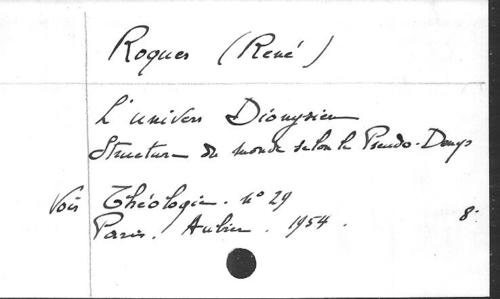 Roques (René)
L'univers Dionysien
Structure du monde selon le Pseudo-Denys
Voir Théologie. n° 29
Paris. Aubier. 1954. 8°